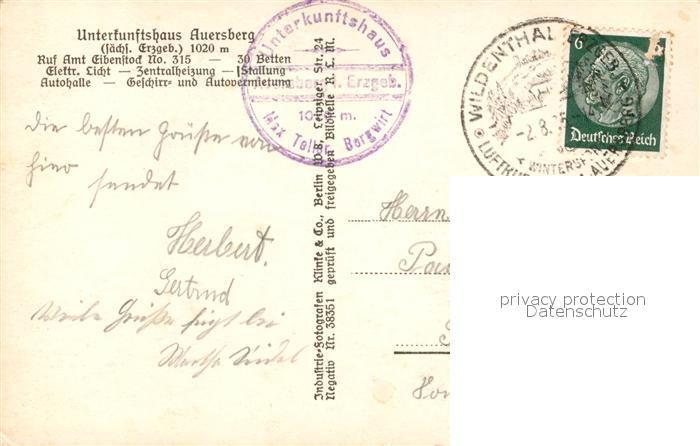 Unterkunftshaus Auersberg
(sächs. Erzgeb.) 1020 m
Ruf Amt Eibenstock No. 315 — 30 Betten
Elektr. Licht — Zentralheizung — Stallung
Autohalle — Geschirr- und Autovermietung
Unterkunftshaus
Erzgeb.
m.
Max Teller, Bergwirt
WILDENTHAL
-2.8.
WINTERSP
LUFTKU
AUER
6
Deutsches Reich
Die besten Grüße von
hier sendet
Herbert.
Gertrud
Viele Grüße fügt bei
Martha Seidel
Industrie-Fotografen Klinke & Co., Berlin W 8, Leipziger Str. 24
Negativ Nr. 38351 geprüft und freigegeben Bildstelle R. L. M.
Herrn
privacy protection
Datenschutz